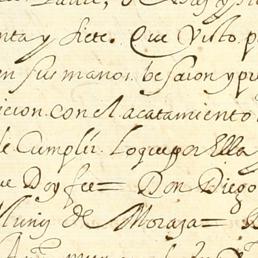 nta y siete. Que Visto p
en sus manos. besaron y pu
icion con el acatamiento
de Cumplir. Lo que por Ella
ue Doy fee= Don Diego
Muniz de Moraga=